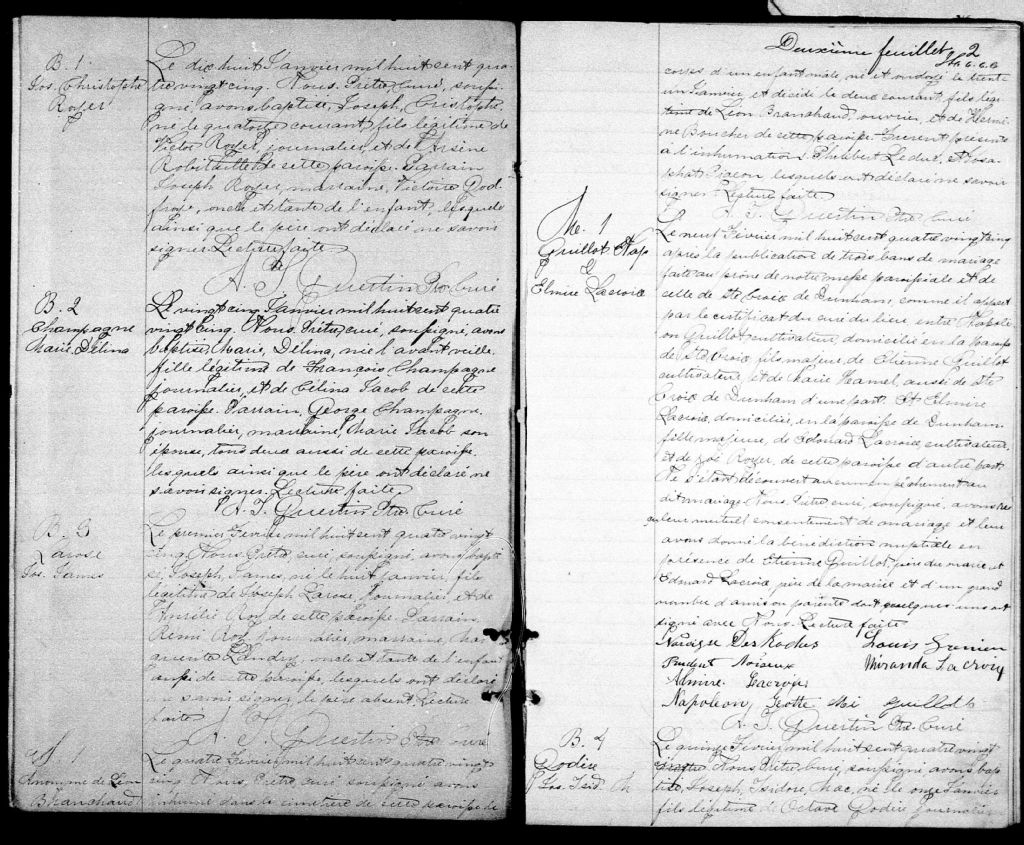 B. 1
Jos. Christophe
Royer
Le dix huit Janvier mil huit cent qua
tre vingt cinq. Nous, Prêtre, curé, soussi
gné avons baptisé, Joseph, Cristophe,
né le quatorze courant, fils légitime de
Victor Royer, journalier, et de Arsine
Robitaille de cette paroisse. Parrain,
Joseph Royer, marraine, Victoire God
froje, oncle et tante de l'enfant, lesquels
ainsi que le père ont déclaré ne savoir
signer. Lecture faite
A. J. Quertin Ptre curé
B. 2
Champagne
Marie Délina
Le vingt cinq Janvier mil huit cent quatre
vingt cinq. Nous, Prêtre, curé, soussigné, avons
baptisé, Marie, Délina, née l'avant veille
fille légitime de François Champagne
journalier, et de Célina Jacob de cette
paroisse. Parrain, George Champagne,
journalier, marraine, Marie Jacob son
épouse, tous deux aussi de cette paroisse.
lesquels ainsi que le père ont déclaré ne
savoir signer. Lecture faite.
A. J. Quertin Ptre Curé
B. 3
Larose
Jos. James
Le premier Fevrier mil huit cent quatre vingt
cinq Nous, Prêtre, curé, soussigné, avons bapti
sé, Joseph, James, né le huit janvier, fils
légitime de Joseph Larose, journalier, et de
Aurélie Roy de cette paroisse. Parrain,
Rémi Roy, journalier, marraine, Ma
Landry, oncle et tante de l'enfant
aussi de cette paroisse, lesquels ont déclaré
savoir signer, le père absent. Lecture
faite
A. J. Quertin Ptre curé
1
Anonyme de Léon
Branchaud
Le quatre Fevrier, mil huit cent quatre vingt
cinq Nous, Prêtre curé soussigné avons
inhumé dans le cimetière de cette paroisse le
Deuxième feuillet 2
corps d'un enfant mâle, né et ondoyé le trente
un Janvier, et décédé le deux courant, fils légi
time de Léon Branchaud, ouvrier, et de Hermi
ne Boucher de cette paroisse. Furent présents
à l'inhumation, Philibert Leduc, et Josa
phat Pigeon lesquels ont déclaré ne savoir
signer. Lecture faite.
A. J. Quertin Ptre Curé
Me. 1
Guillot Nap
&
Elmire Lacroix
Le neuf Fevrier mil huit cent quatre vingt cinq
après la publication de trois bans de mariage
faite au prône de notre messe paroissiale et de
celle de Ste Croix de Dunham, comme il appert
par le certificat du curé du lieu entre Napolé
on Guillot, cultivateur, domicilié en la paroisse
de Ste Croix, fils majeur de Etienne Guillot
cultivateur, et de Marie Hamel, aussi de Ste
Croix de Dunham d'une part. Et Elmire
Lacroix, domiciliée, en la paroisse de Dunham,
fille majeure, de Edouard Lacroix, cultivateur,
et de Zoé Royer, de cette paroisse d'autre part.
Ne s'étant découvert aucun empêchement au
dit mariage, Nous, Prêtre curé, soussigné, avons re
çu leur mutuel consentement de mariage et leur
avons donné la bénédiction nuptiale en
présence de Etienne Guillot, père du marié et
Edouard Lacroix, père de la mariée et d'un grand
nombre d'amis ou parents dont quelques uns ont
signé avec Nous. Lecture faite
Louis Grenier
Prudent Noiseux Miranda Lacroix
Admire Lacroix
Napoleon, Guillot
A. J. Quertin Ptre Curé
B. 4
Godère
Jos. Isid.
Le quinze Fevrier, mil huit cent quatre vingt
Nous, Prêtre, curé, soussigné avons bap
tisé, Joseph, Isidore, Mac, né le onze Janvier
fils légitime d'Octave Godère, journalier